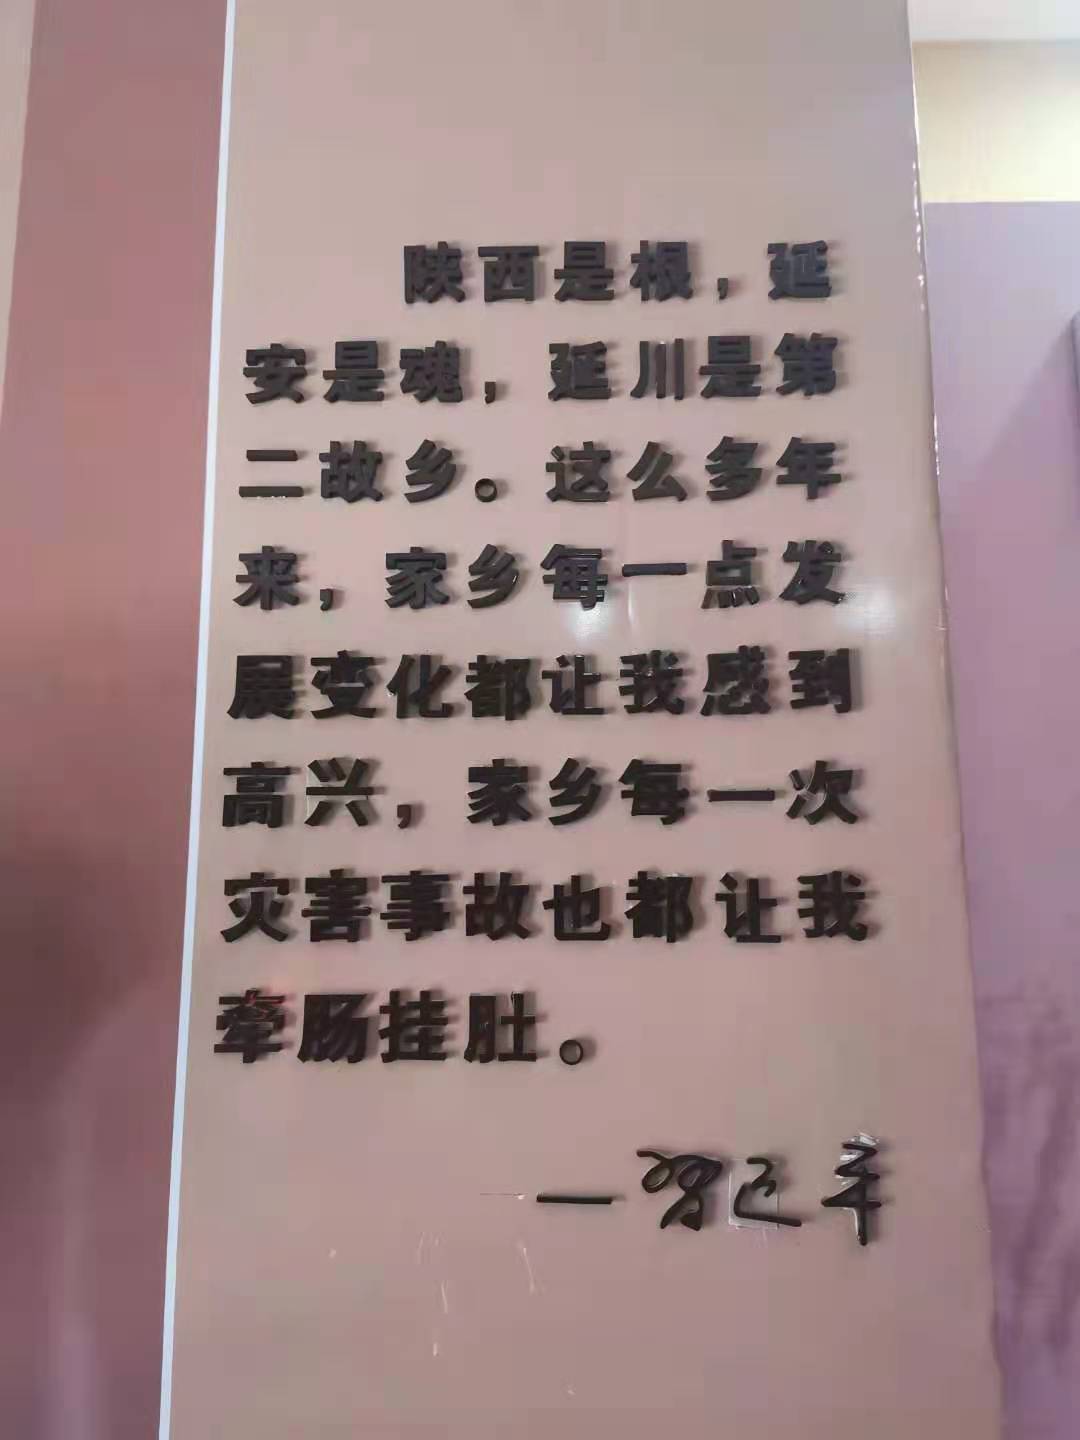 陕西是根，延
安是魂，延川是第
二故乡。这么多年
来，家乡每一点发
展变化都让我感到
高兴，家乡每一次
灾害事故也都让我
牵肠挂肚。
—习近平